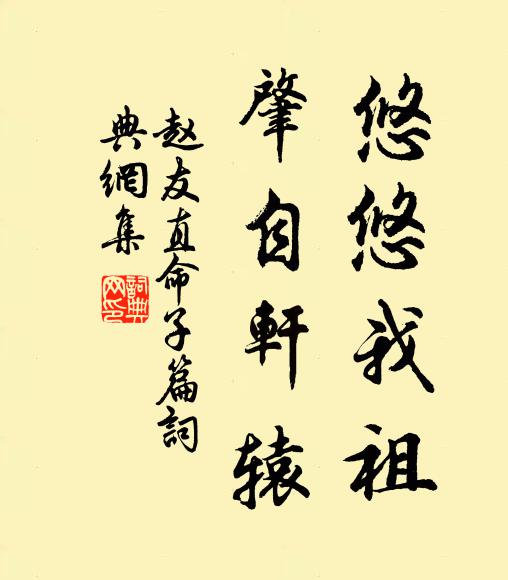 悠悠我祖
肇自軒辕
赵友直命子篇詞
典網集
詞典
网印